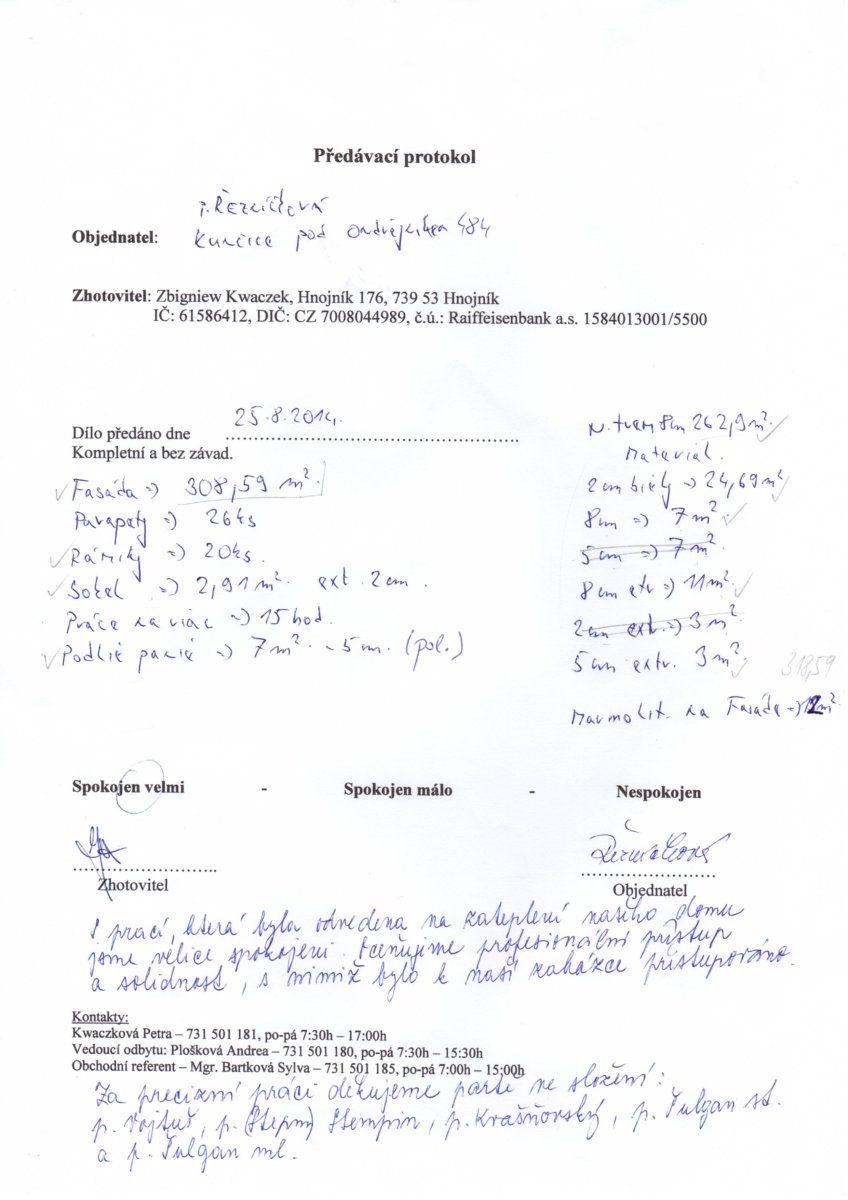 Předávací protokol
p. Řezníčková
Objednatel: Kunčice pod Ondřejníkem 484
Zhotovitel: Zbigniew Kwaczek, Hnojník 176, 739 53 Hnojník
IČ: 61586412, DIČ: CZ 7008044989, č.ú.: Raiffeisenbank a.s. 1584013001/5500
Dílo předáno dne 25.8.2014.
Kompletní a bez závad.
Fasáda => 308,59 m².
Parapety => 26ks
Rámiky => 20ks.
Sokel => 2,91 m². ext. 2cm.
Práce na viac => 15hod.
7m² - 5cm. (pol.)
8cm 262,9m².
Material.
2cm biely => 24,69m²
8cm => 7m²
5cm => 7m².
8cm etr => 11m².
2cm ext. => 3m².
5cm extr. 3m²
318,59
Marmolit. na Fasáda => 12m².
Spokojen velmi - Spokojen málo - Nespokojen
Zhotovitel
Objednatel
S prací, která byla odvedena na zateplení našeho domu
jsme velice spokojeni. Oceňujeme profesionální přístup
a solidnost, s nimiž bylo k naší zakázce přistupováno.
Kontakty:
Kwaczková Petra – 731 501 181, po-pá 7:30h – 17:00h
Vedoucí odbytu: Plošková Andrea – 731 501 180, po-pá 7:30h – 15:30h
Obchodní referent – Mgr. Bartková Sylva – 731 501 185, po-pá 7:00h – 15:00h
Za precizní práci děkujeme partě ve složení:
p. Vojtuš, p. (Stepm) Stempin, p. Krašňovský, p. Fulgan st.
a p. Fulgan ml.